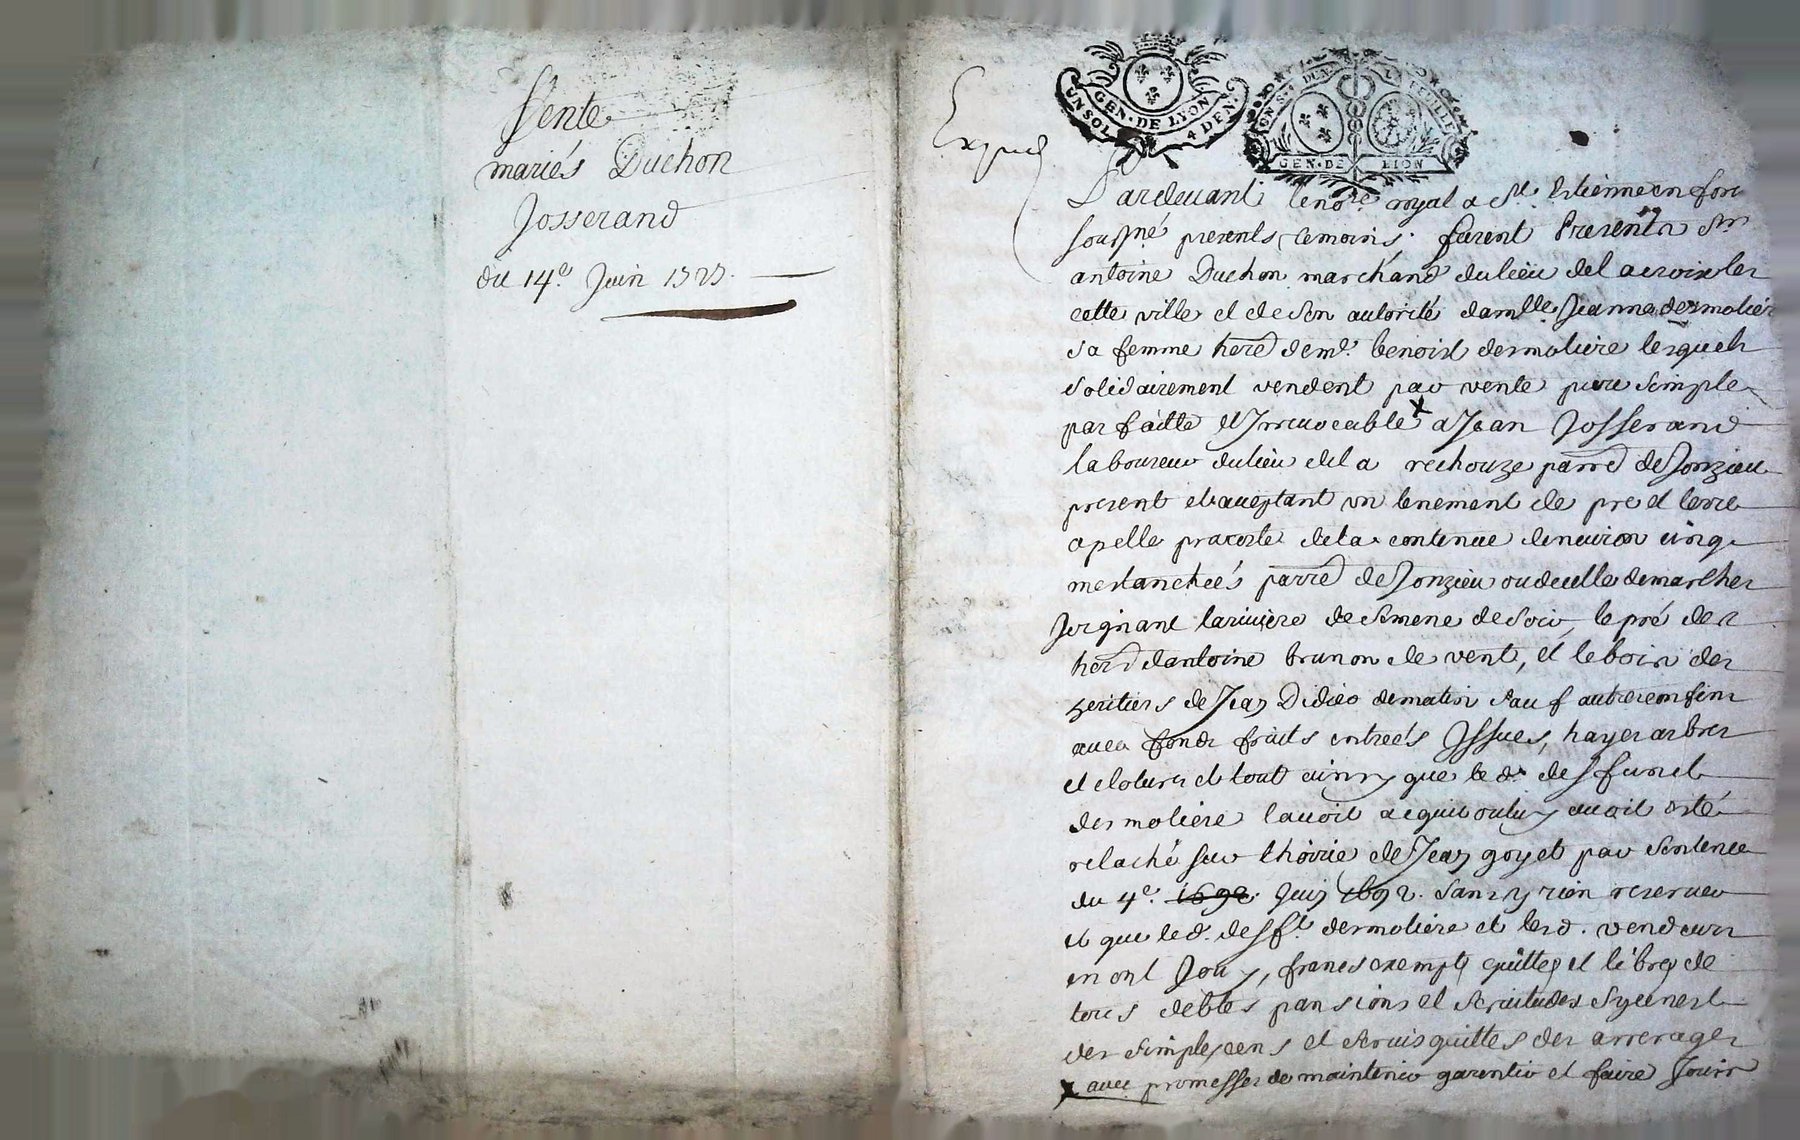 Vente
mariés Duchon
Josserand
du 14e. Juin 1727.
Expued
GEN. DE LYON
UN SOL 4 DEN.
GEN. DE LION
Pardevant le nore. royal a St. Estienne en fore
sousné presents temoins. furent Presentn Sr
antoine Duchon marchand du lieu del a croix les
cette ville et de son autorité damlle Jeanne dermoliere
sa femme hered de md. benoist dermoliere lesquels
solidairement vendent par vente pure simple
parfaitte et Irrevocable x a Jean Josserand
laboureur du lieu del a rechouze parred de Jonzieu
present et aceptant un tenement de pre et terre
apelle pracoste de la contenue denuiron cinq
mestancheés parred de Jonzieu ou de celle de marlhes
Joignant la riuiere de Semene de soir, le pré des
hered dantoine brunon de vent, et le bois des
heritiers de Jean Didier de matin sauf autres confins
avec fonds fruits entreés Issues, hayes arbres
et clotures et tout ainsy que le d. deffunct
dermoliere lauoit acquis ou luy auoit esté
relaché sur lhoirie de Jean goyet par sentence
du 4e. 1692. Juin 1692. sans y rien reseruer
et que le d. defft dermoliere et les d. vendeurs
en ont Jouy, francs exempts quittes et libres de
tous debtes pansions et seruitudes sy ce nest
des simples cens et seruis quittes des arrerages
x avec promesses de maintenir garentir et faire Jouir